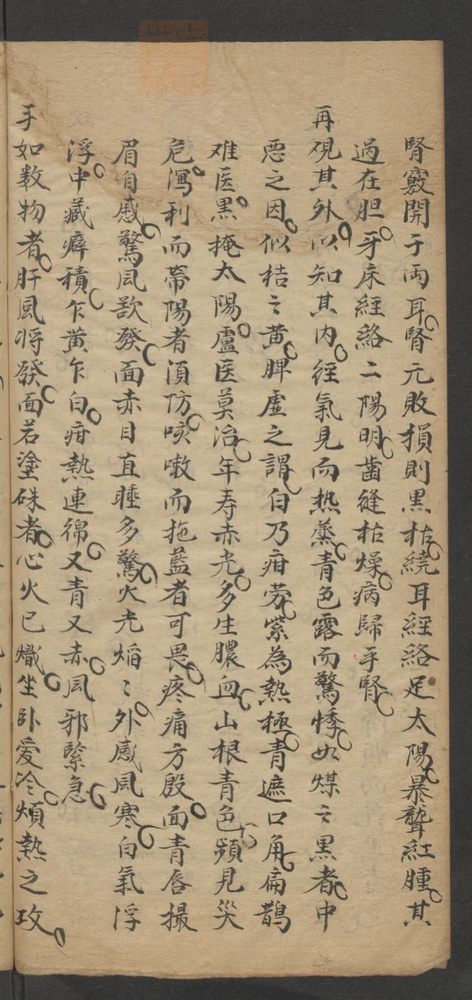 腎竅開于兩耳腎元敗損則黑枯繞耳經絡足太陽暴聾紅腫其
過在胆牙床經絡二陽明齒縫枯燥病歸手腎
再覌其外以知其内經氣見而热蒸青色露而驚悸如煤之黑者中
惡之因似桔之黄脾虚之謂白乃疳劳紫為熱極青遮口角扁鵲
难医黑掩太陽盧医莫治年寿赤光多生膿血山根青色頻見災
危瀉利而帶陽者須防咳嗽而拖藍者可畏疼痛方殷面青唇撮
眉自感驚風欲發面赤目直睡多驚火光焰々外感風寒白氣浮
浮中藏癖積乍黄乍白疳熱連綿又青又赤風邪緊急
手如数物者肝風将發面若塗硃者心火已熾坐卧爱冷煩熱之攻